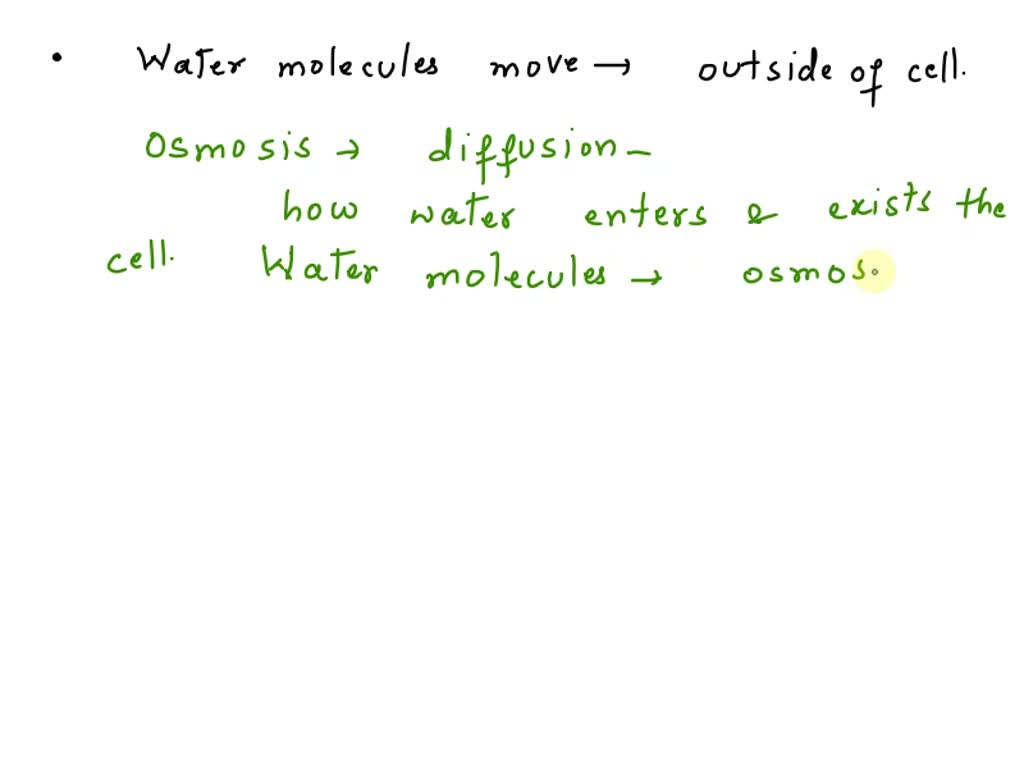 • Water molecules move → outside of cell.
Osmosis → diffusion –
how water enters & exists the
cell. Water molecules → osmos